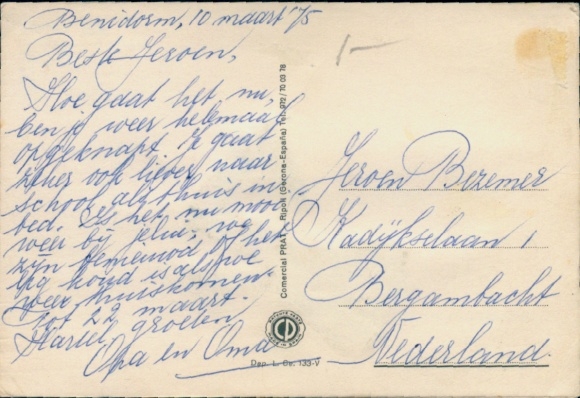 Benidorm, 10 maart '75
Beste Jeroen,
Hoe gaat het nu,
ben je weer helemaal
opgeknapt. Je gaat
zeker ook liever naar
school als thuis in
bed. Is het nu mooi
weer bij jelui, we
zijn benieuwd of het
erg koud is als we
weer thuiskomen.
Tot 22 maart.
Hartel. groeten
Opa en Oma
Jeroen Bezemer
Kadijkselaan 1
Bergambacht
Nederland.
Comercial PRAT - Ripoll (Gerona-España) Tel. 972/70 03 78
Dep. L. Ge. 133-V